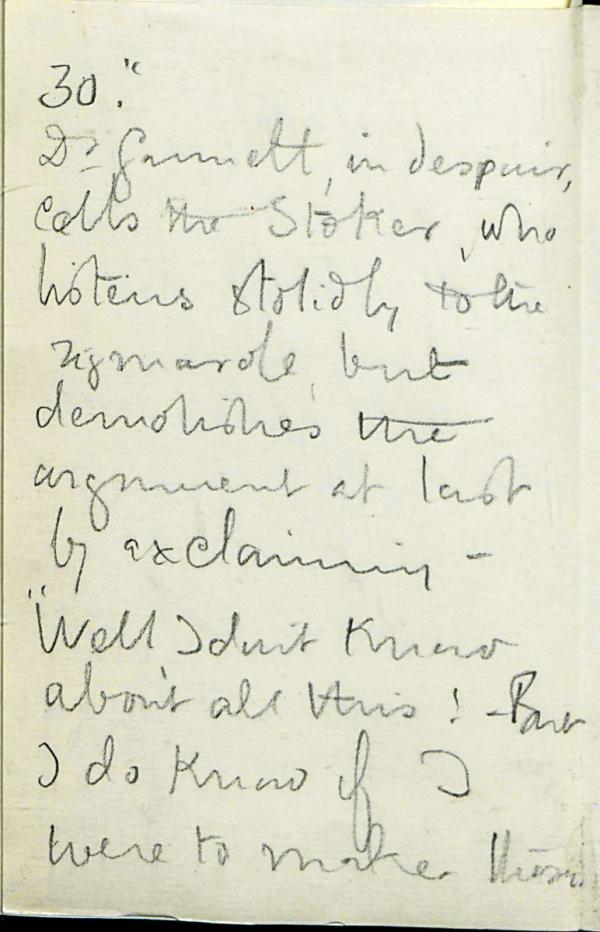 30."
Dr Garnett, in despair,
calls the Stoker, who
listens stolidly to the
rigmarole, but
demolishes the
argument at last
by exclaiming -
"Well I don't know
about all this! - But
I do know if I
were to make